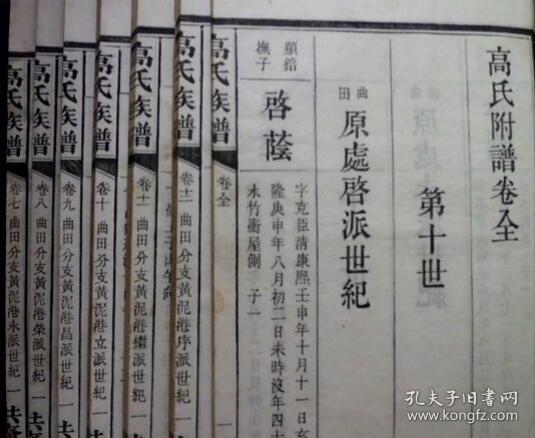 高氏附譜卷全
第十世
曲田 原處啓派世紀
顯錇撫子
啓蔭
字克臣清康熙壬申年十月十一日亥
隆庚申年八月初二日未時沒年四十
水竹衝屋側 子一
高氏族譜 卷全 一
高氏族譜 卷十二 曲田分支黃泥港序派世紀 一
高氏族譜 卷十一 曲田分支黃泥港繼派世紀 一
高氏族譜 卷十 曲田分支黃泥港立派世紀 一
高氏族譜 卷九 曲田分支黃泥港昌派世紀 一
高氏族譜 卷八 曲田分支黃泥港榮派世紀 一
高氏族譜 卷七 曲田分支黃泥港永派世紀 一
孔夫子旧书网
www.kongfz.com